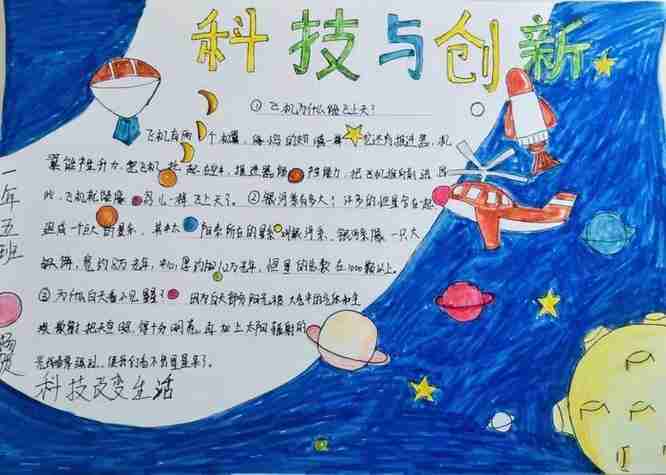 科技与创新
① 飞机为什么能飞上天?
飞机有两个机翼,像鸟的翅膀一样,它还有推进器,机
翼能产生升力,把飞机托起在空中,推进器
力,把飞机推向前
飞机就能像鸟儿一样飞上天了。② 银河系有多大? 许多的恒星合在起
组成一个巨大的星系,其中太阳系所在的星系叫银河系,银河系像一只大
铁饼,宽约8万光年,中心厚约1.2万光年,恒星的总数在1000颗以上。
③ 为什么白天看不见星星? 因为白天部分阳光被大气中的气体和尘
埃散射,把天空照得十分明亮,再加上太阳辐射的
光线非常强烈,使我们看不出星星来了。
科技改变生活
一年五班